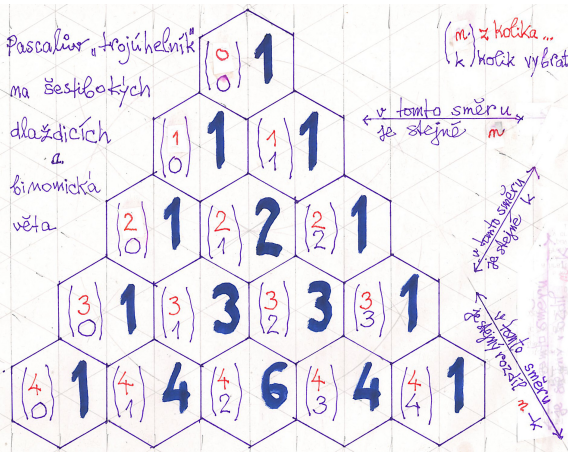 Pascalův „trojúhelník“
na šestibokých
dlaždicích
a
binomická
věta
(n) z kolika...
(k) kolik vybrat
v tomto směru
je stejné n
v tomto směru
je stejné k
v tomto směru
je stejný rozdíl n-k
(0 0) 1
(1 0) 1 (1 1) 1
(2 0) 1 (2 1) 2 (2 2) 1
(3 0) 1 (3 1) 3 (3 2) 3 (3 3) 1
(4 0) 1 (4 1) 4 (4 2) 6 (4 3) 4 (4 4) 1